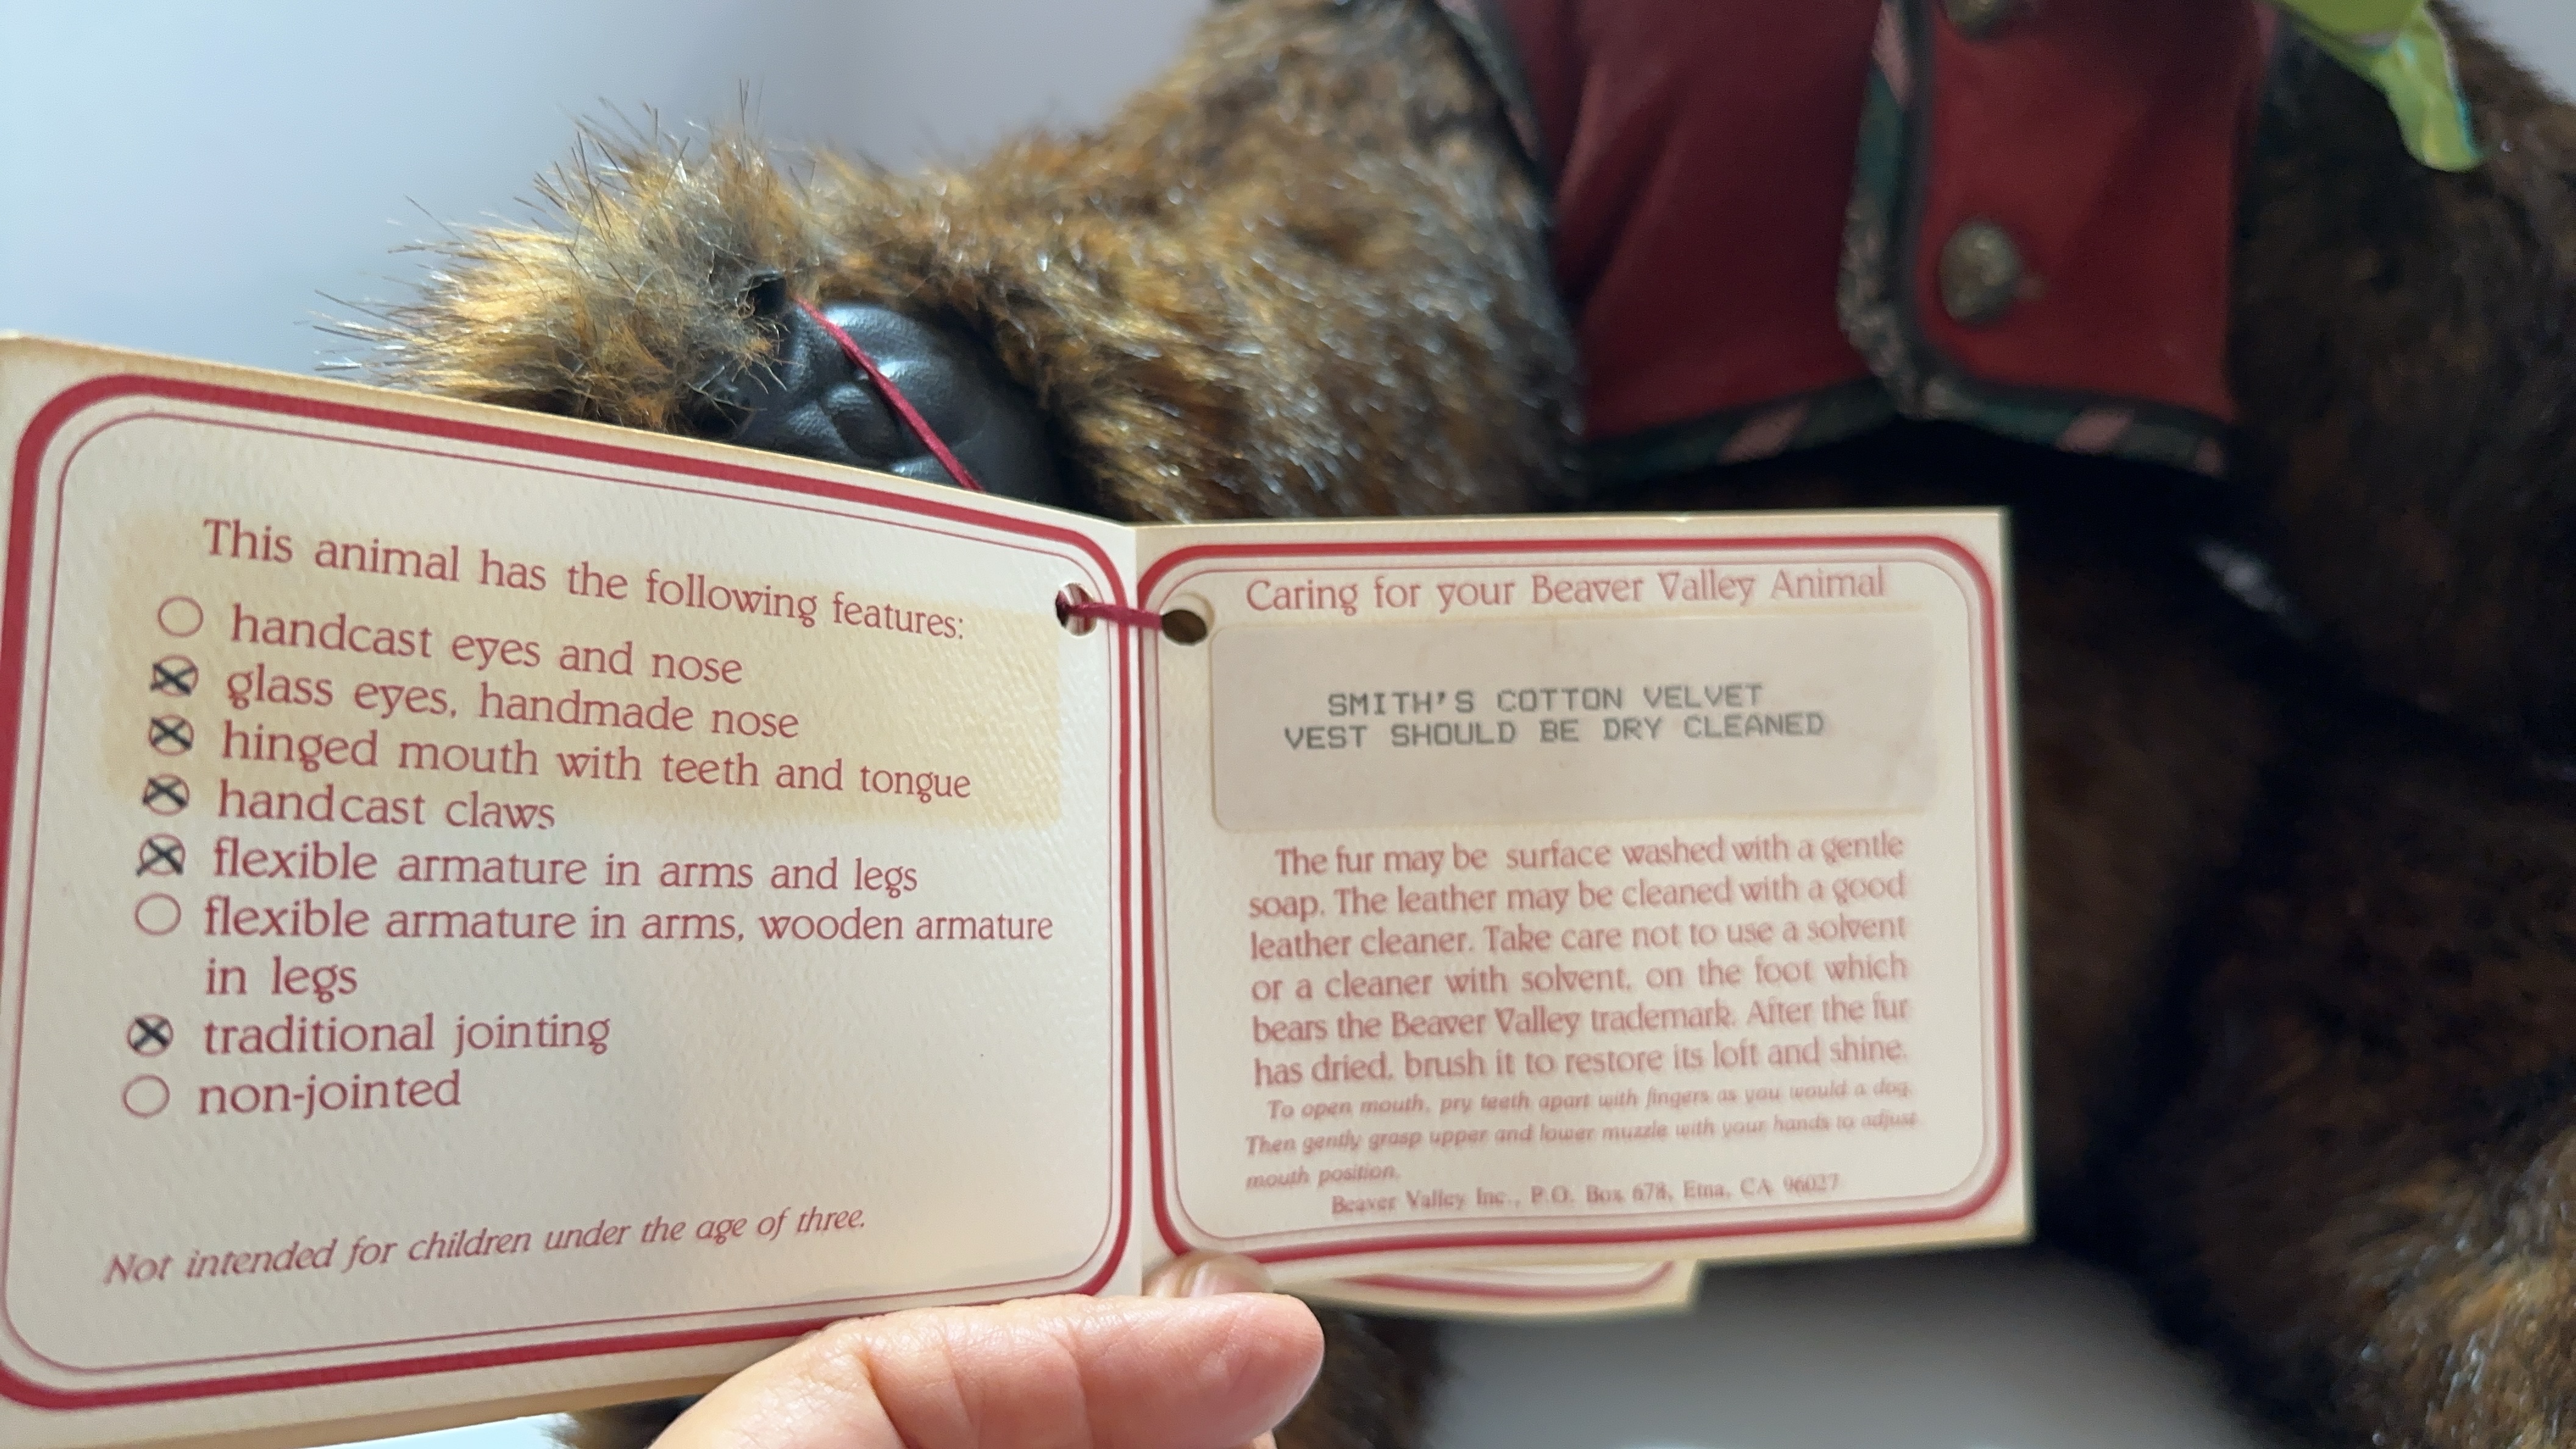 This animal has the following features:
handcast eyes and nose
glass eyes, handmade nose
hinged mouth with teeth and tongue
handcast claws
flexible armature in arms and legs
flexible armature in arms, wooden armature
in legs
traditional jointing
non-jointed
Not intended for children under the age of three.
Caring for your Beaver Valley Animal
SMITH'S COTTON VELVET
VEST SHOULD BE DRY CLEANED
The fur may be surface washed with a gentle
soap. The leather may be cleaned with a good
leather cleaner. Take care not to use a solvent
or a cleaner with solvent, on the foot which
bears the Beaver Valley trademark. After the fur
has dried, brush it to restore its loft and shine.
To open mouth, pry teeth apart with fingers as you would a dog.
Then gently grasp upper and lower muzzle with your hands to adjust
mouth position.
Beaver Valley Inc., P.O. Box 678, Etna, CA 96027